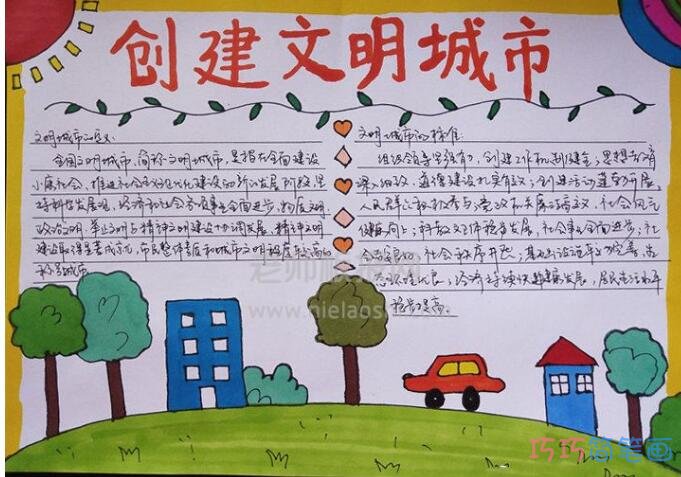 创建文明城市
文明城市的含义:
全国文明城市，简称文明城市，是指在全面建设
小康社会，推进社会主义现代化建设的新的发展阶段，坚
持科学发展观，经济和社会各项事业全面进步，物质文明、
政治文明、精神文明建设协调发展，精神文明
建设取得显著成就，市民整体素质和城市文明程度较高的
称号城市
文明城市的标准:
组织领导坚强有力，创建工作机制健全；思想教育
深入细致，道德建设扎实有效；创建活动蓬勃开展，
人民群众积极参与；党政机关廉洁高效，社会风气
健康向上；科教文卫体稳步发展，社会事业全面进步；社
会面良好，社会秩序井然；基础设施完善，
态环境优良；经济持续快速健康发展，居民生活水平
稳步提高。
老师板报网
www.nielaoshi
巧巧简笔画